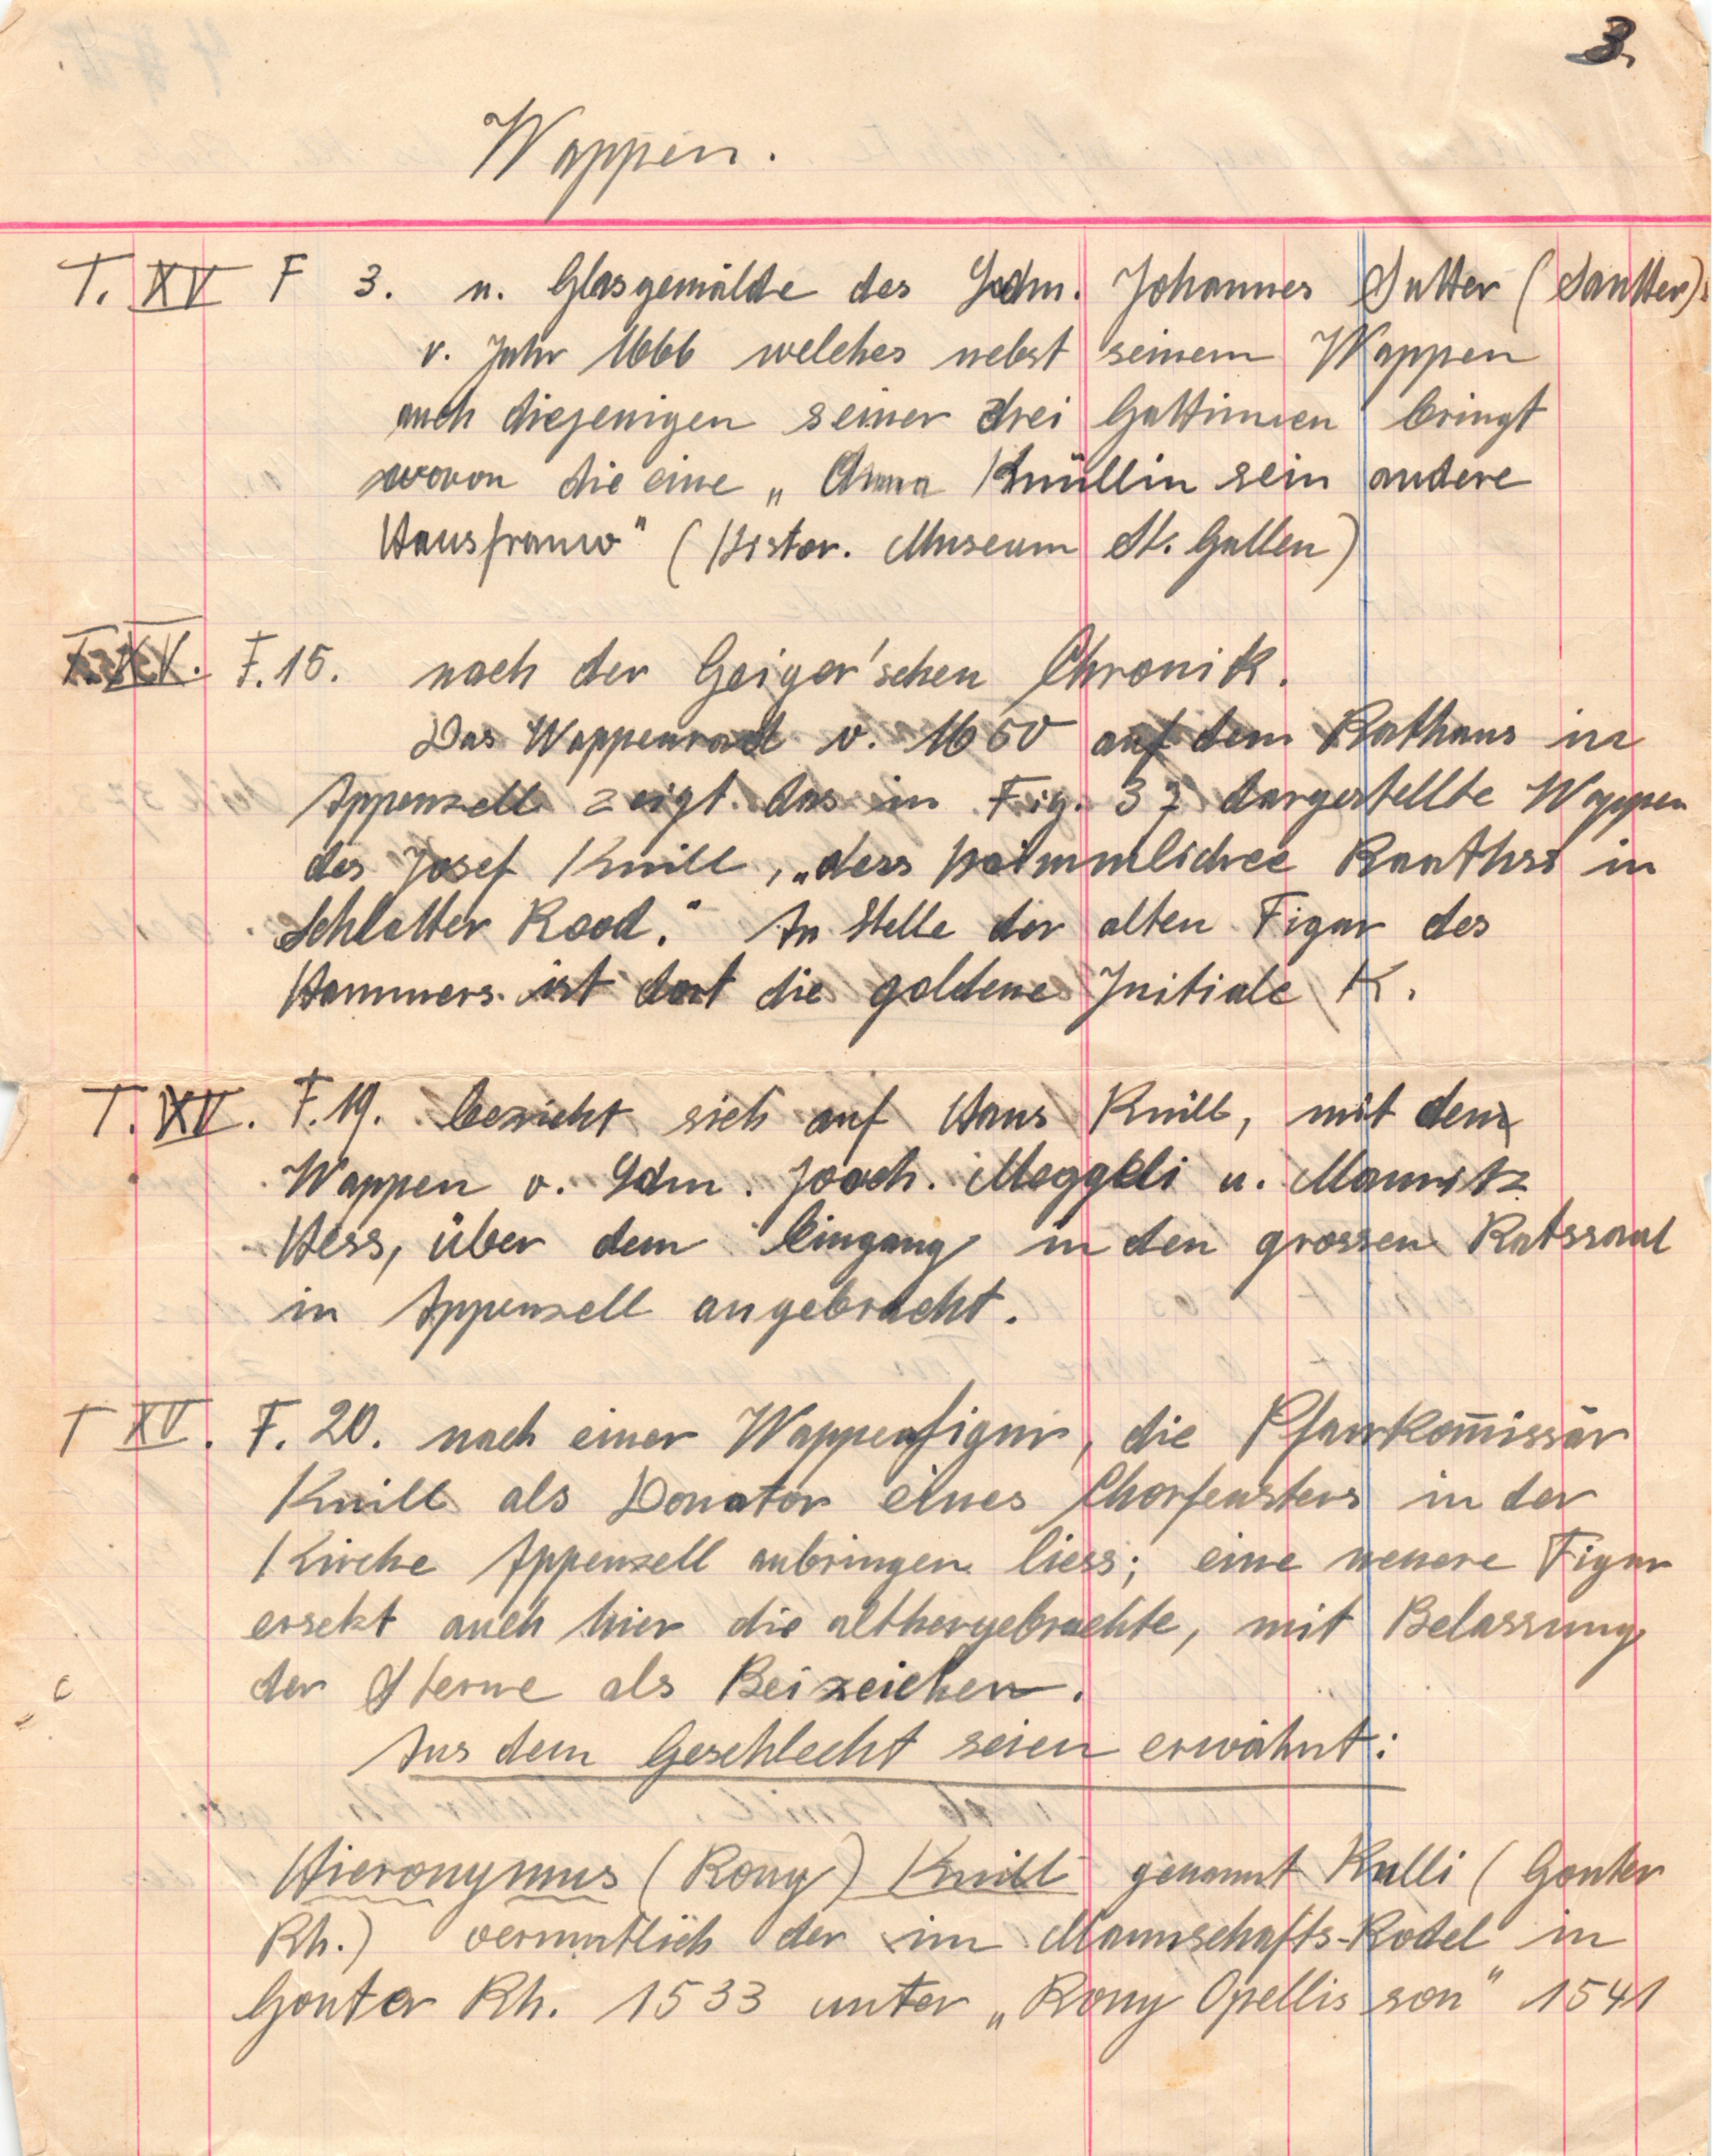 3.
Wappen.
T. XV F 3. n. Glasgemälde des Ldm. Johannes Sutter (Sautter)
v. Jahr 1666 welches nebst seinem Wappen
auch diejenigen seiner drei Gattinnen bringt
wovon die eine „Anna Knüllin sein andere
Hausfrauw" (Histor. Museum St. Gallen)
T. XV. F. 15. nach der Geiger'schen Chronik.
Das Wappenrad v. 1650 auf dem Rathaus in
Appenzell zeigt das in Fig. 37 dargestellte Wappen
des Josef Knill, „dess Raathss in
Schlatter Rood." An Stelle der alten Figur des
Hammers ist dort die goldene Initiale K.
T. XV. F. 19. bezieht sich auf Hans Knill, mit dem
Wappen v. Ldm. Joach. Meggeli u. Mauritz
Hess, über dem Eingang in den grossen Ratssaal
in Appenzell angebracht.
T XV. F. 20. nach einer Wappenfigur, die Pfarrkom̄issär
Knill als Donator eines Chorfensters in der
Kirche Appenzell anbringen liess; eine neuere Figur
ersetzt auch hier die althergebrachte, mit Belassung
der Sterne als Beizeichen.
Aus dem Geschlecht seien erwähnt:
Hieronymus (Rony) Knill genannt Kulli (Gonter
Rh.) vermutlich der im Mannschafts-Rodel in
Gonter Rh. 1533 unter „Rony Opellis son" 1541